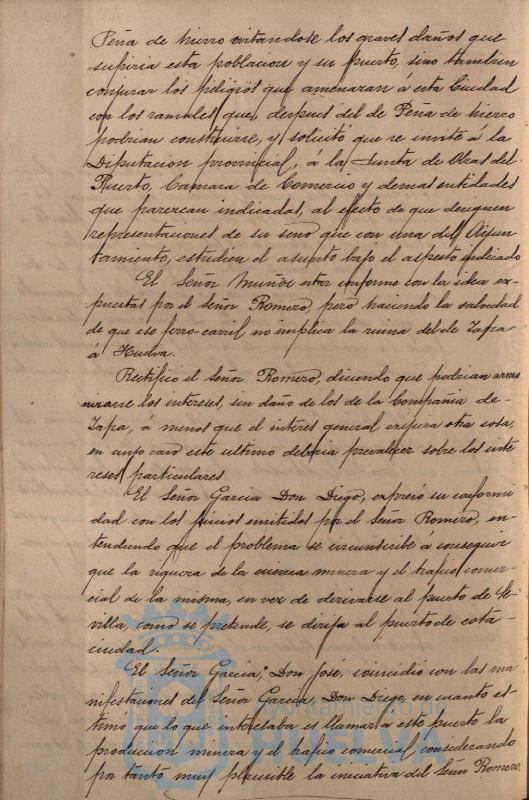 Peña de hierro evitandose los graves daños que
sufriria esta poblacion y su puerto, sino tambien
conjurar los peligros que amenazan á esta Ciudad
con los ramales que, despues del de Peña de hierro
podrian construirse, y solicitó que se invite á la
Diputacion provincial, á la Junta de Obras del
Puerto, Camara de Comercio y demas entidades
que parezcan indicadas, al efecto de que designen
representaciones de su seno que con una del Ayun-
tamiento, estudien el asunto bajo el aspecto indicado
El Señor Muñoz estar conforme con la idea ex-
puestas por el Señor Romero, pero haciendo la salvedad
de que ese ferro-carril no implica la ruina del de Zafra
á Huelva.
Rectificó el Señor Romero, diciendo que podrian armo
nizarse los intereses, sin daño de los de la Compañia de
Zafra, á menos que el interes general exijiera otra cosa,
en cuyo caso este ultimo deberia prevalecer sobre los inte
reses particulares
El Señor Garcia Don Diego, expresó su conformi
dad con los juicios emitidos por el Señor Romero, en-
tendiendo que el problema se circunscribe á conseguir
que la riqueza de la cuenca minera y el trafico comer-
cial de la misma, en vez de derivarse al puerto de Se-
villa, como se pretende, se dirija al puerto de esta
ciudad.
El Señor Garcia, Don José, coincidio con las ma
nifestaciones del Señor Garcia, Don Diego, en cuanto es-
timo que lo que interesaba es llamar á este puerto la
produccion minera y el trafico comercial considerando
por tanto muy plausible la iniciativa del Señor Romero.
Ayuntamiento de
HUELVA